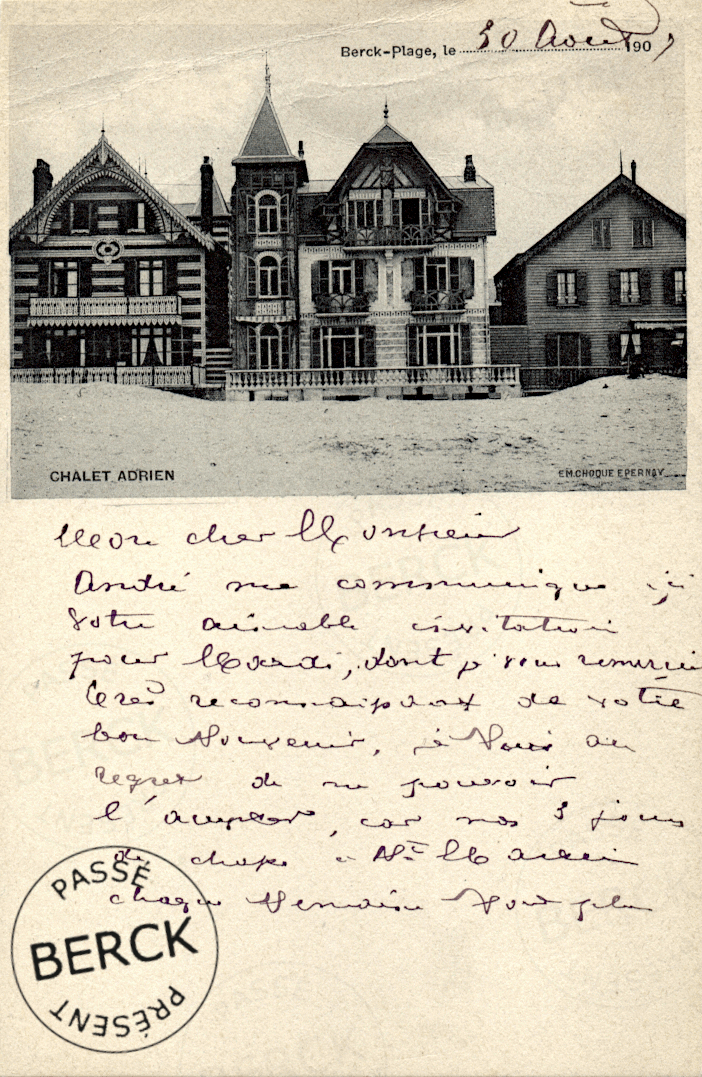 Berck-Plage, le 30 Août 1907
CHALET ADRIEN
EM.CHOQUE EPERNAY
Mon cher Monsieur
André me communique ici
votre aimable invitation
pour Mardi, dont je vous remercie
Très reconnaissant de votre
bon souvenir, je suis au
regret de ne pouvoir
l'accepter, car nos 3 jours
de chasse à St
chaque semaine sont
PASSÉ
BERCK
PRÉSENT